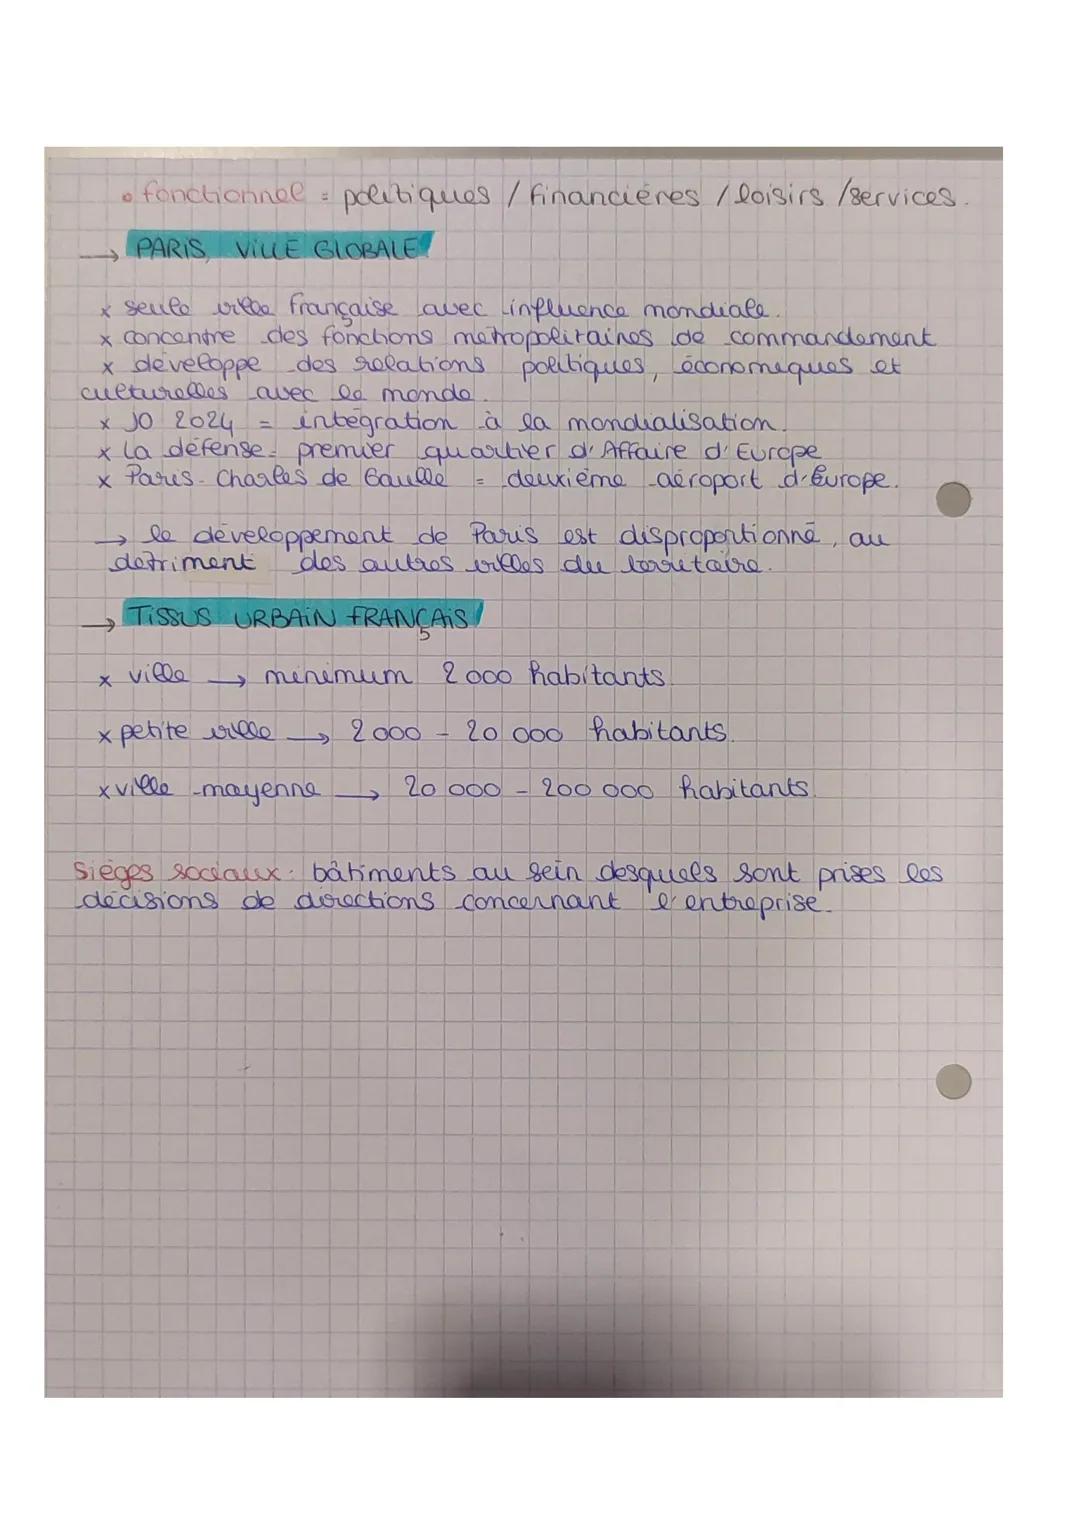 • fonctionnel = politiques / financières / loisirs / services.
→ PARIS, VILLE GLOBALE
x seule ville française avec influence mondiale.
x concentre des fonctions métropolitaines de commandement
x développe des relations politiques, économiques et
culturelles avec le monde.
x JO 2024 = intégration à la mondialisation.
x La défense = premier quartier d'Affaire d'Europe
x Paris-Charles de Gaulle = deuxième aéroport d'Europe.
→ le développement de Paris est disproportionné, au
detriment des autres villes du territoire.
→ TISSUS URBAIN FRANÇAIS
x ville → minimum 2 000 habitants.
x petite ville → 2 000 - 20 000 habitants.
x ville moyenne → 20 000 - 200 000 habitants.
Sièges sociaux : bâtiments au sein desquels sont prises les
décisions de directions concernant l'entreprise.